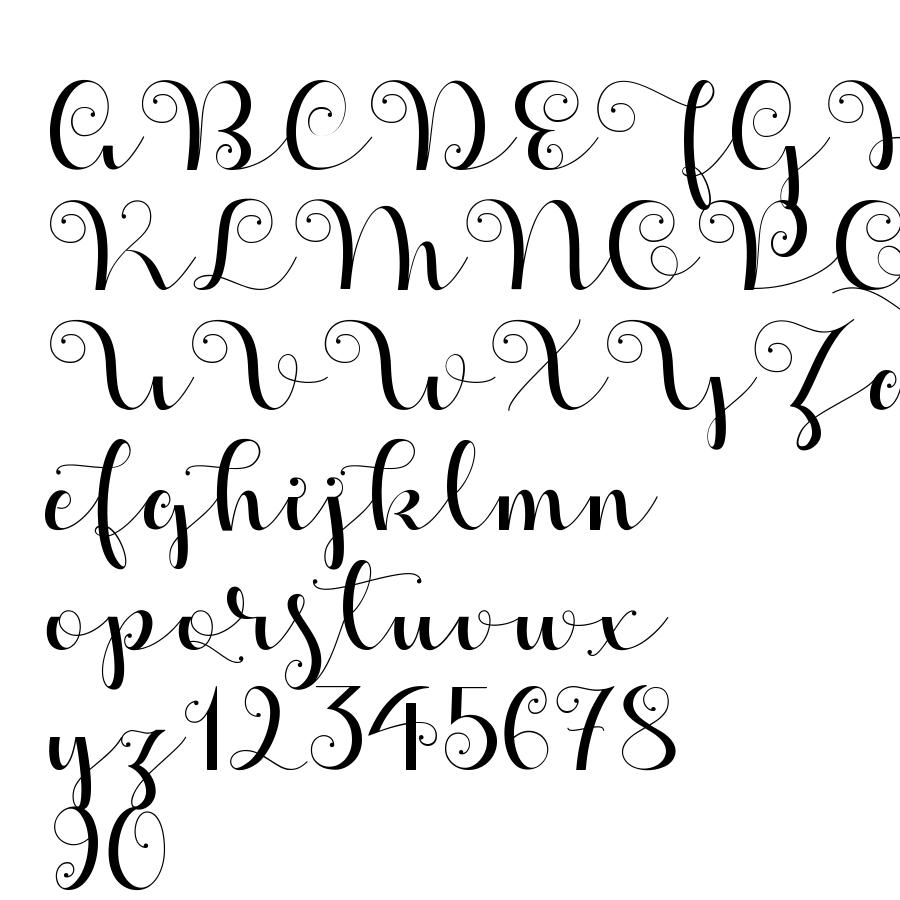 ABCDEFGH
KLMNOPQ
UVWXYZa
efghijklmn
opqrstuvwx
yz12345678
90